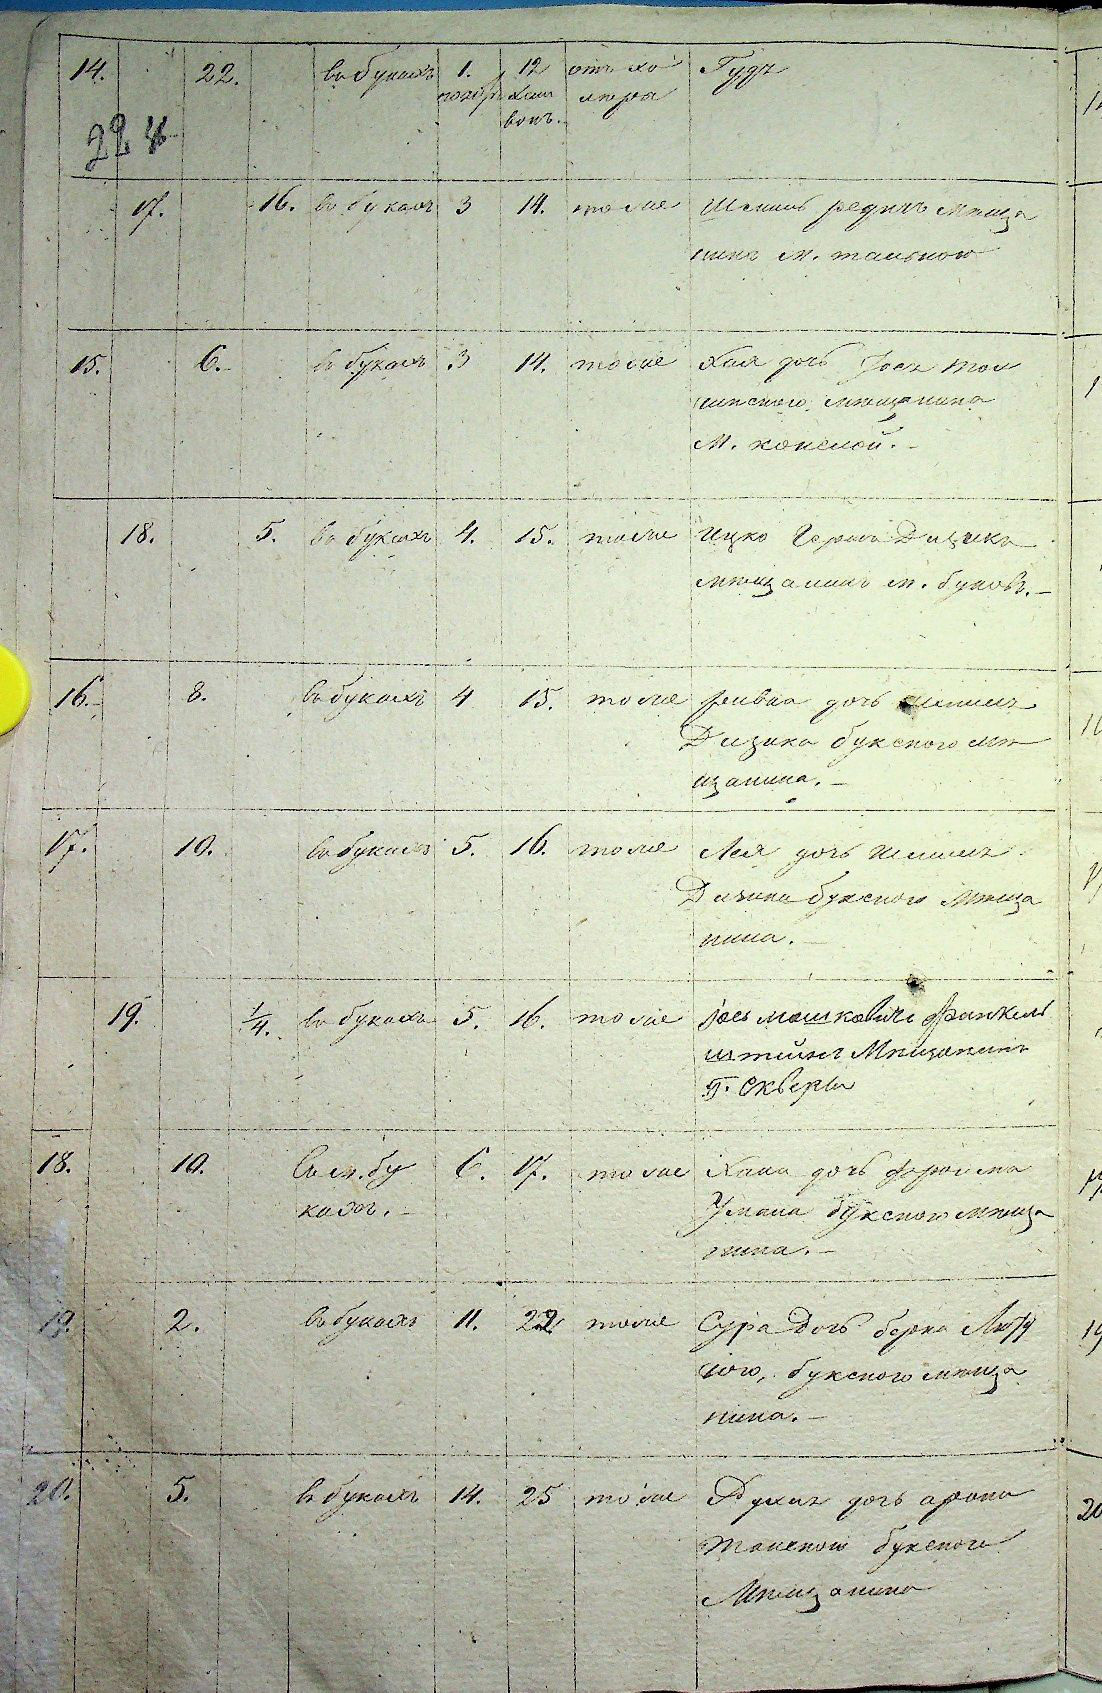 14. 22. въ букахъ 1. 12 отъ хо Гудъ
нояб. Хеш лера
вонъ.
224
17. 16. въ букахъ 3 14. тоже Шлима мѣща
нинъ м. тальною
15. 6. въ букахъ 3 14. тоже Хая дочь Іося Тол
чинского мѣщанина
м. конелой.
18. 5. въ букахъ 4. 15. тоже Ицко Дизика
мѣщанинъ м. буковъ.
16. 8. въ букахъ 4 15. тоже ривка дочь шлиомъ
Дизика букского мѣ
щанина.
17. 10. въ букахъ 5. 16. тоже Лея дочь
Дизика букского мѣща
нина.
19. 1/4. въ букахъ 5. 16. тоже Іось мошковичъ Франкель
штейнъ Мѣщанинъ
г. Сквиры
18. 10. въ м. бу 6. 17. тоже Хана дочь фроима
кахъ. Умана букского мѣща
нина.
19. 2. въ букахъ 11. 22 тоже Сура дочь берка
ного, букского мѣща
нина.
20. 5. въ букахъ 14. 25 тоже дочь арона
букского
Мѣщанина